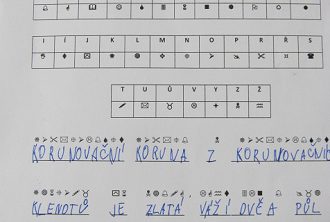 I Í J K L M N O P R Ř S
T U Ú V Y Z Ž
KORUNOVAČNÍ KORUNA Z KORUNOVAČNÍCH
KLENOTŮ JE ZLATÁ VÁŽÍ DVĚ A PŮL